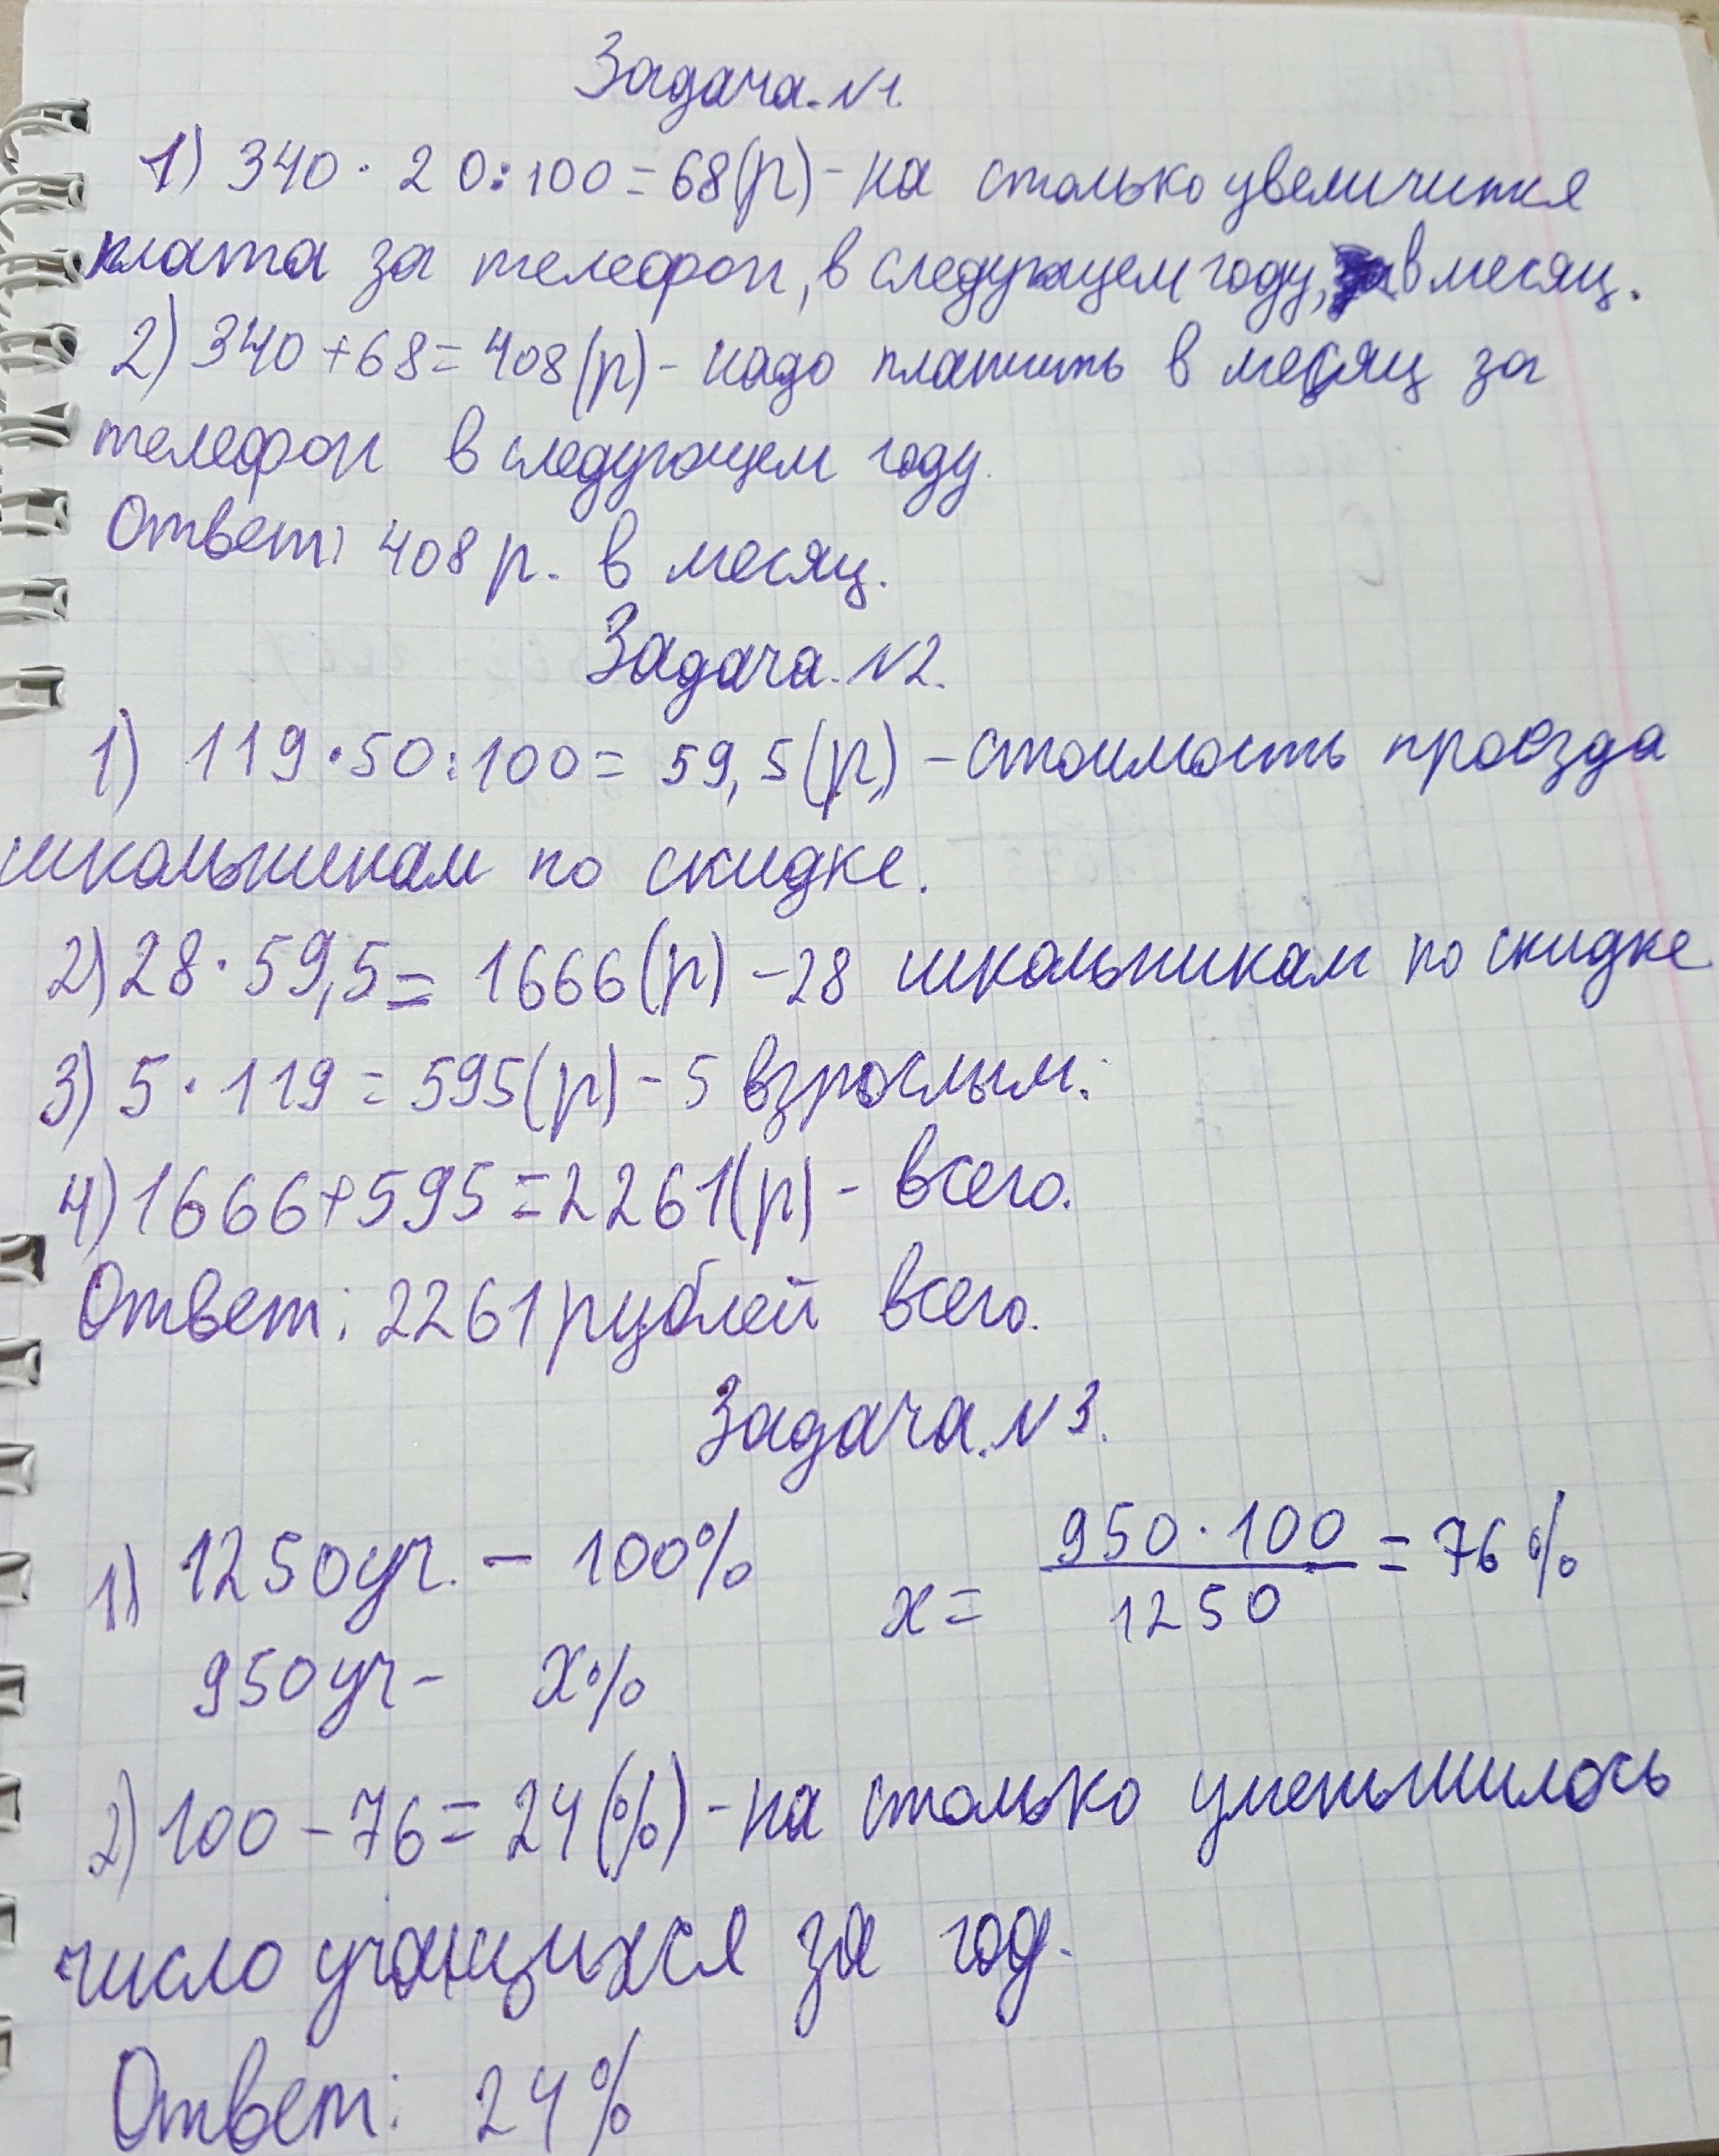 Задача. N1.
1) 340 · 20:100 = 68(р) - на столько увеличится
плата за телефон, в следующем году, в месяц.
2) 340 + 68 = 408 (р) - надо платить в месяц за
телефон в следующем году.
Ответ: 408 р. в месяц.
Задача. N2.
1) 119 · 50:100 = 59,5 (р) - стоимость проезда
школьникам по скидке.
2) 28 · 59,5 = 1666 (р) - 28 школьникам по скидке
3) 5 · 119 = 595 (р) - 5 взрослым.
4) 1666 + 595 = 2261 (р) - всего.
Ответ: 2261 рублей всего.
Задача. N3.
1) 1250 уч. - 100% x = 950 · 100 / 1250 = 76 %
950 уч - x%
2) 100 - 76 = 24 (%) - на столько уменьшилось
число учащихся за год.
Ответ: 24%